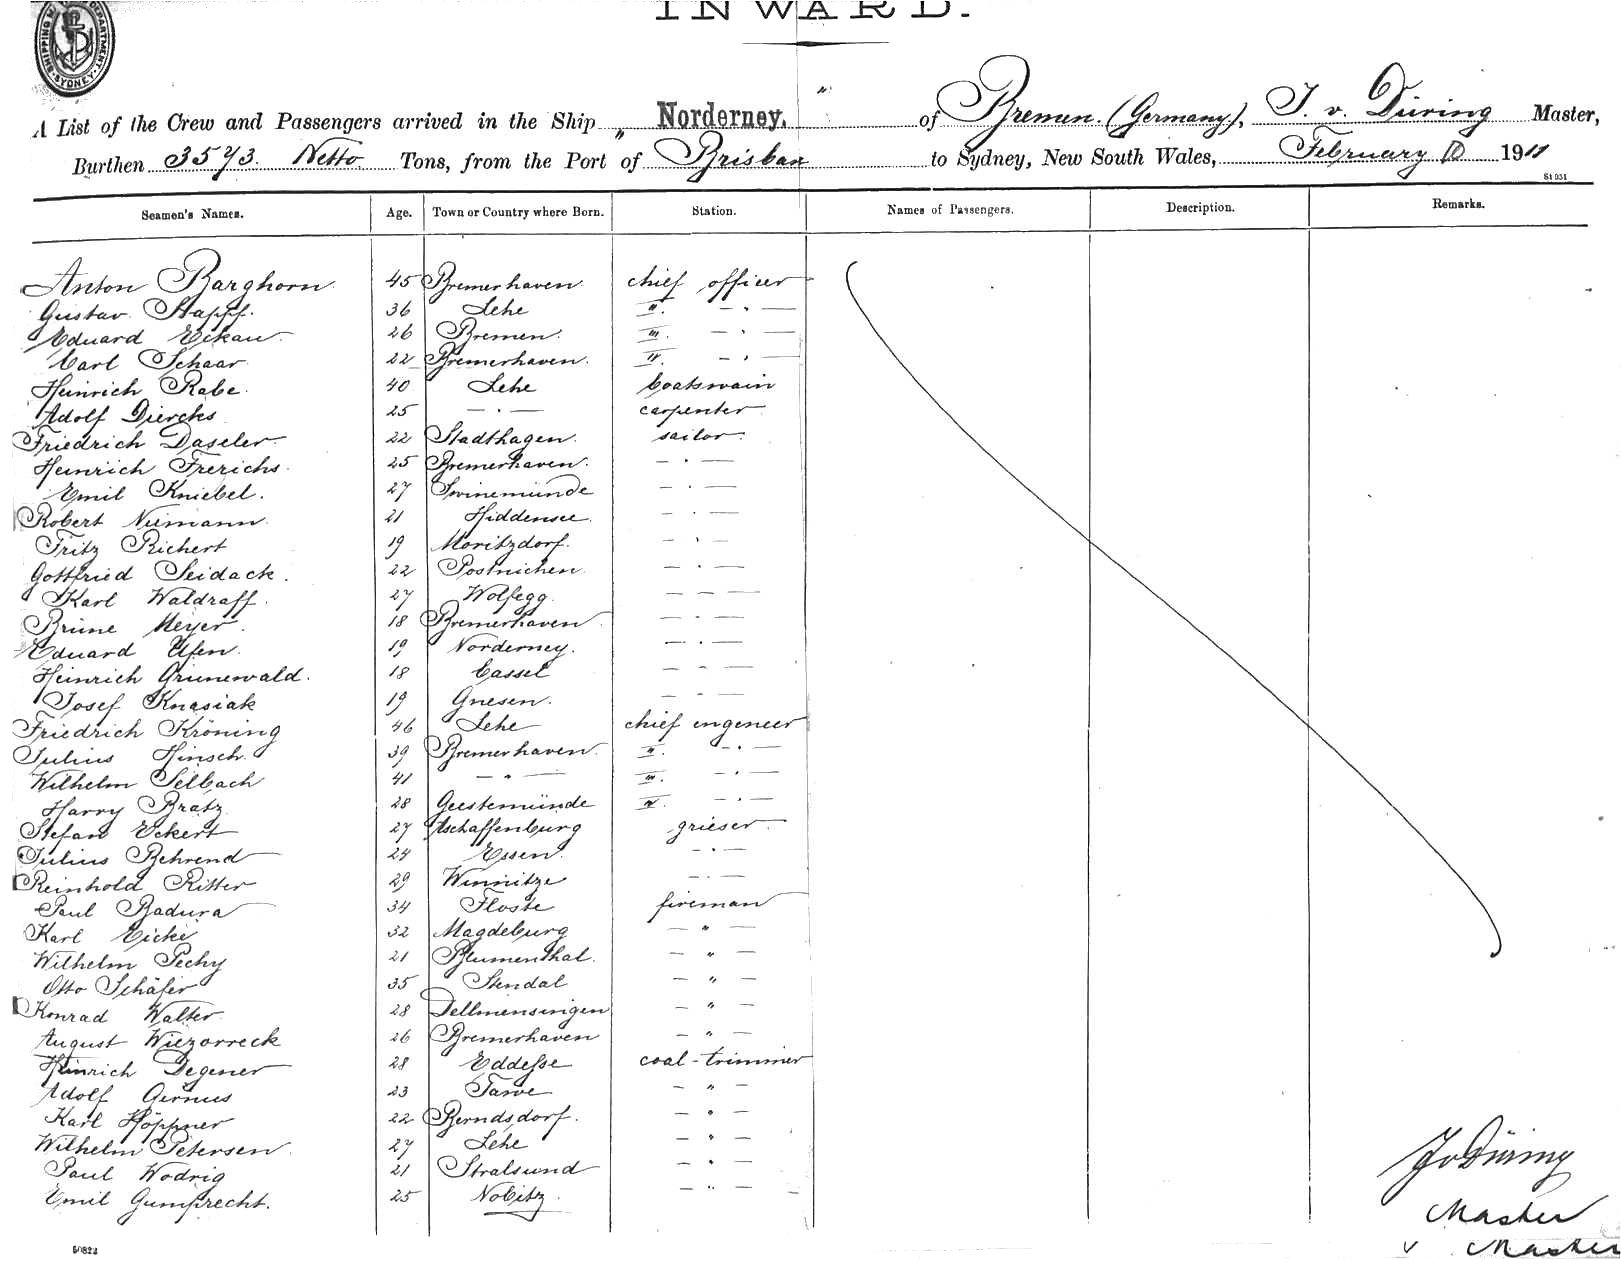 INWARD.
SHIPPING DEPARTMENT SYDNEY
A List of the Crew and Passengers arrived in the Ship " Norderney. " of Bremen. (Germany), J. v. Düring Master,
Burthen 3573. Netto Tons, from the Port of Brisban to Sydney, New South Wales, February 1911
S1 031
Seamen's Names. Age. Town or Country where Born. Station. Names of Passengers. Description. Remarks.
Anton Barghorn 45 Bremerhaven chief officer
Gustav Stapff. 36 Lehe II. - " -
Eduard Eckau. 26 Bremen. III. - " -
Carl Schaar 22 Bremerhaven. IV. - " -
Heinrich Rabe. 40 Lehe boatswain
Adolf Diercks 25 - " - carpenter
Friedrich Daseler. 22 Stadthagen. sailor.
Heinrich Frerichs. 25 Bremerhaven. - " -
Emil Kniebel. 27 Swinemünde - " -
Robert Niemann. 21 Hiddensee. - " -
Fritz Richert 19 Moritzdorf. - " -
Gottfried Seidack. 22 Postnichen. - " -
Karl Waldraff. 27 Wolfegg. - " -
Brüne Meyer. 18 Bremerhaven - " -
Eduard Ufen. 19 Norderney. - " -
Heinrich Grünewald. 18 Cassel - " -
Josef Knasiak 19 Gnesen. - " -
Friedrich Kröning 46 Lehe chief engeneer
Julius Hinsch. 39 Bremerhaven. II. - " -
Wilhelm Selbach 41 - " - III. - " -
Harry Bratz 28 Geestemünde IV. - " -
Stefan Eckert 27 Aschaffenburg grieser
Julius Behrend 24 Essen. - " -
Reinhold Ritter 29 Winnitze - " -
Paul Badura 34 Floste fireman
Karl Eicke 32 Magdeburg - " -
Wilhelm Pechy 21 Blumenthal. - " -
Otto Schäfer 35 Stendal - " -
Konrad Walter 28 Dellmensingen - " -
August Wiezorreck 26 Bremerhaven - " -
Heinrich Degener 28 Eddesse coal-trimmer
Adolf Gernus 23 Tawe - " -
Karl Höppner 22 Berndsdorf. - " -
Wilhelm Petersen. 27 Lehe - " -
Paul Wodrig 21 Stralsund - " -
Emil Gumprecht. 25 Nobitz. - " -
JvDüring
Master
v Master
50823